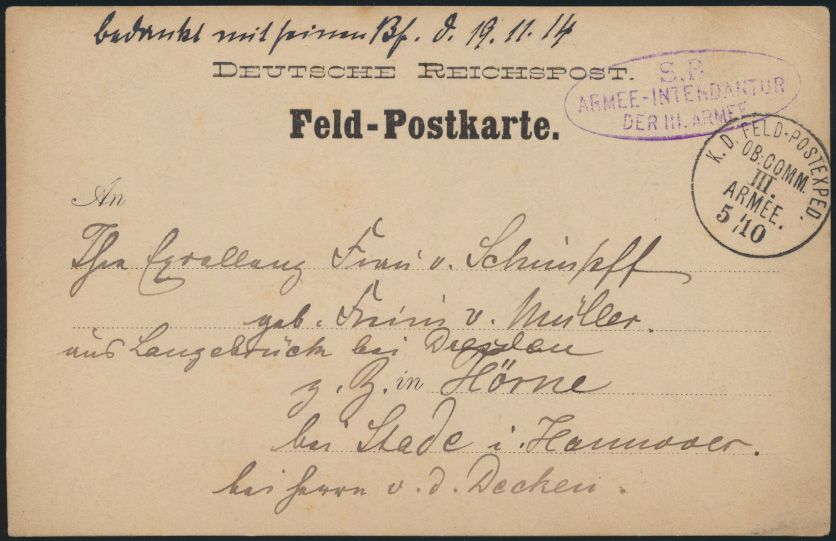 bedankt mit seinem Bf. d. 19.11.14
DEUTSCHE REICHSPOST.
Feld-Postkarte.
S.B.
ARMEE-INTENDANTUR
DER III. ARMEE
K. D. FELD-POSTEXPED.
OB.COMM.
III.
ARMEE.
5/10
An
Ihre Exzellenz Frau v. Schimpff
geb. v. Müller.
aus Langebrück bei Dresden
z. Z. in Hörne
bei Stade i. Hannover.
bei Herrn v. d. Decken.